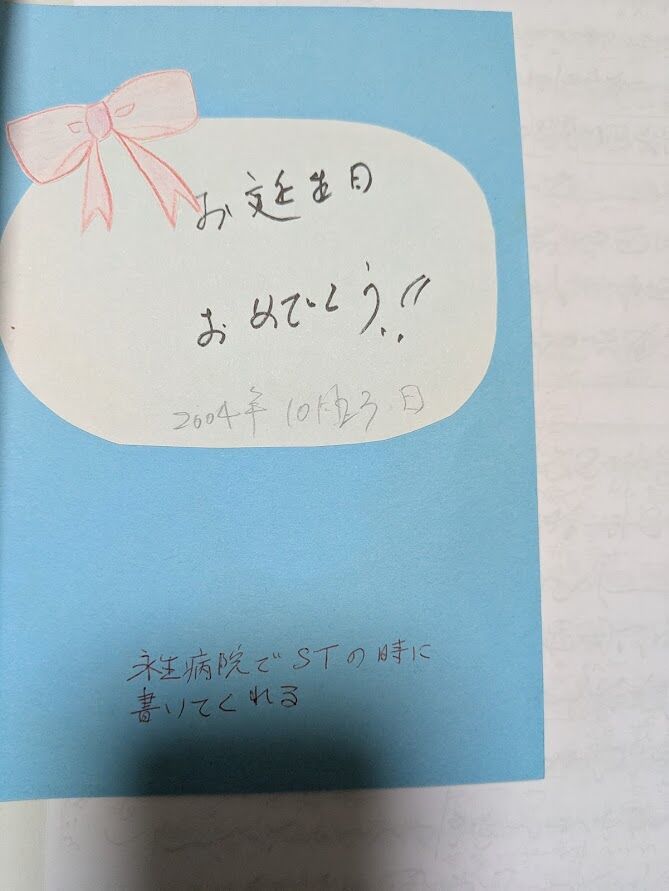 お誕生日
おめでとう!!
2004年10月23日
永生病院でSTの時に
書いてくれる